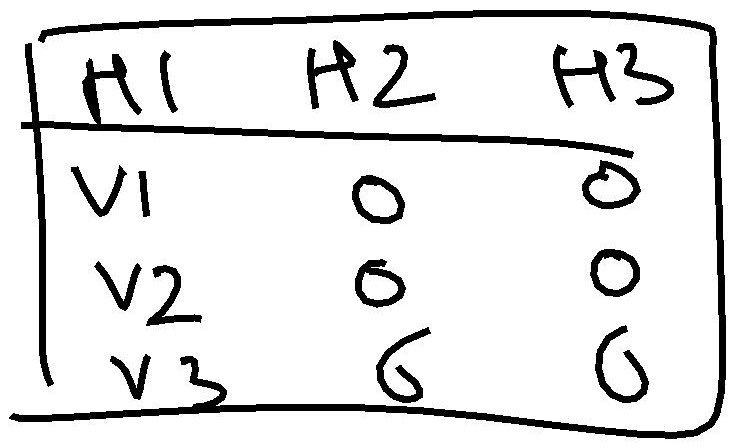 H1 H2 H3
V1 0 0
V2 0 0
V3 6 6